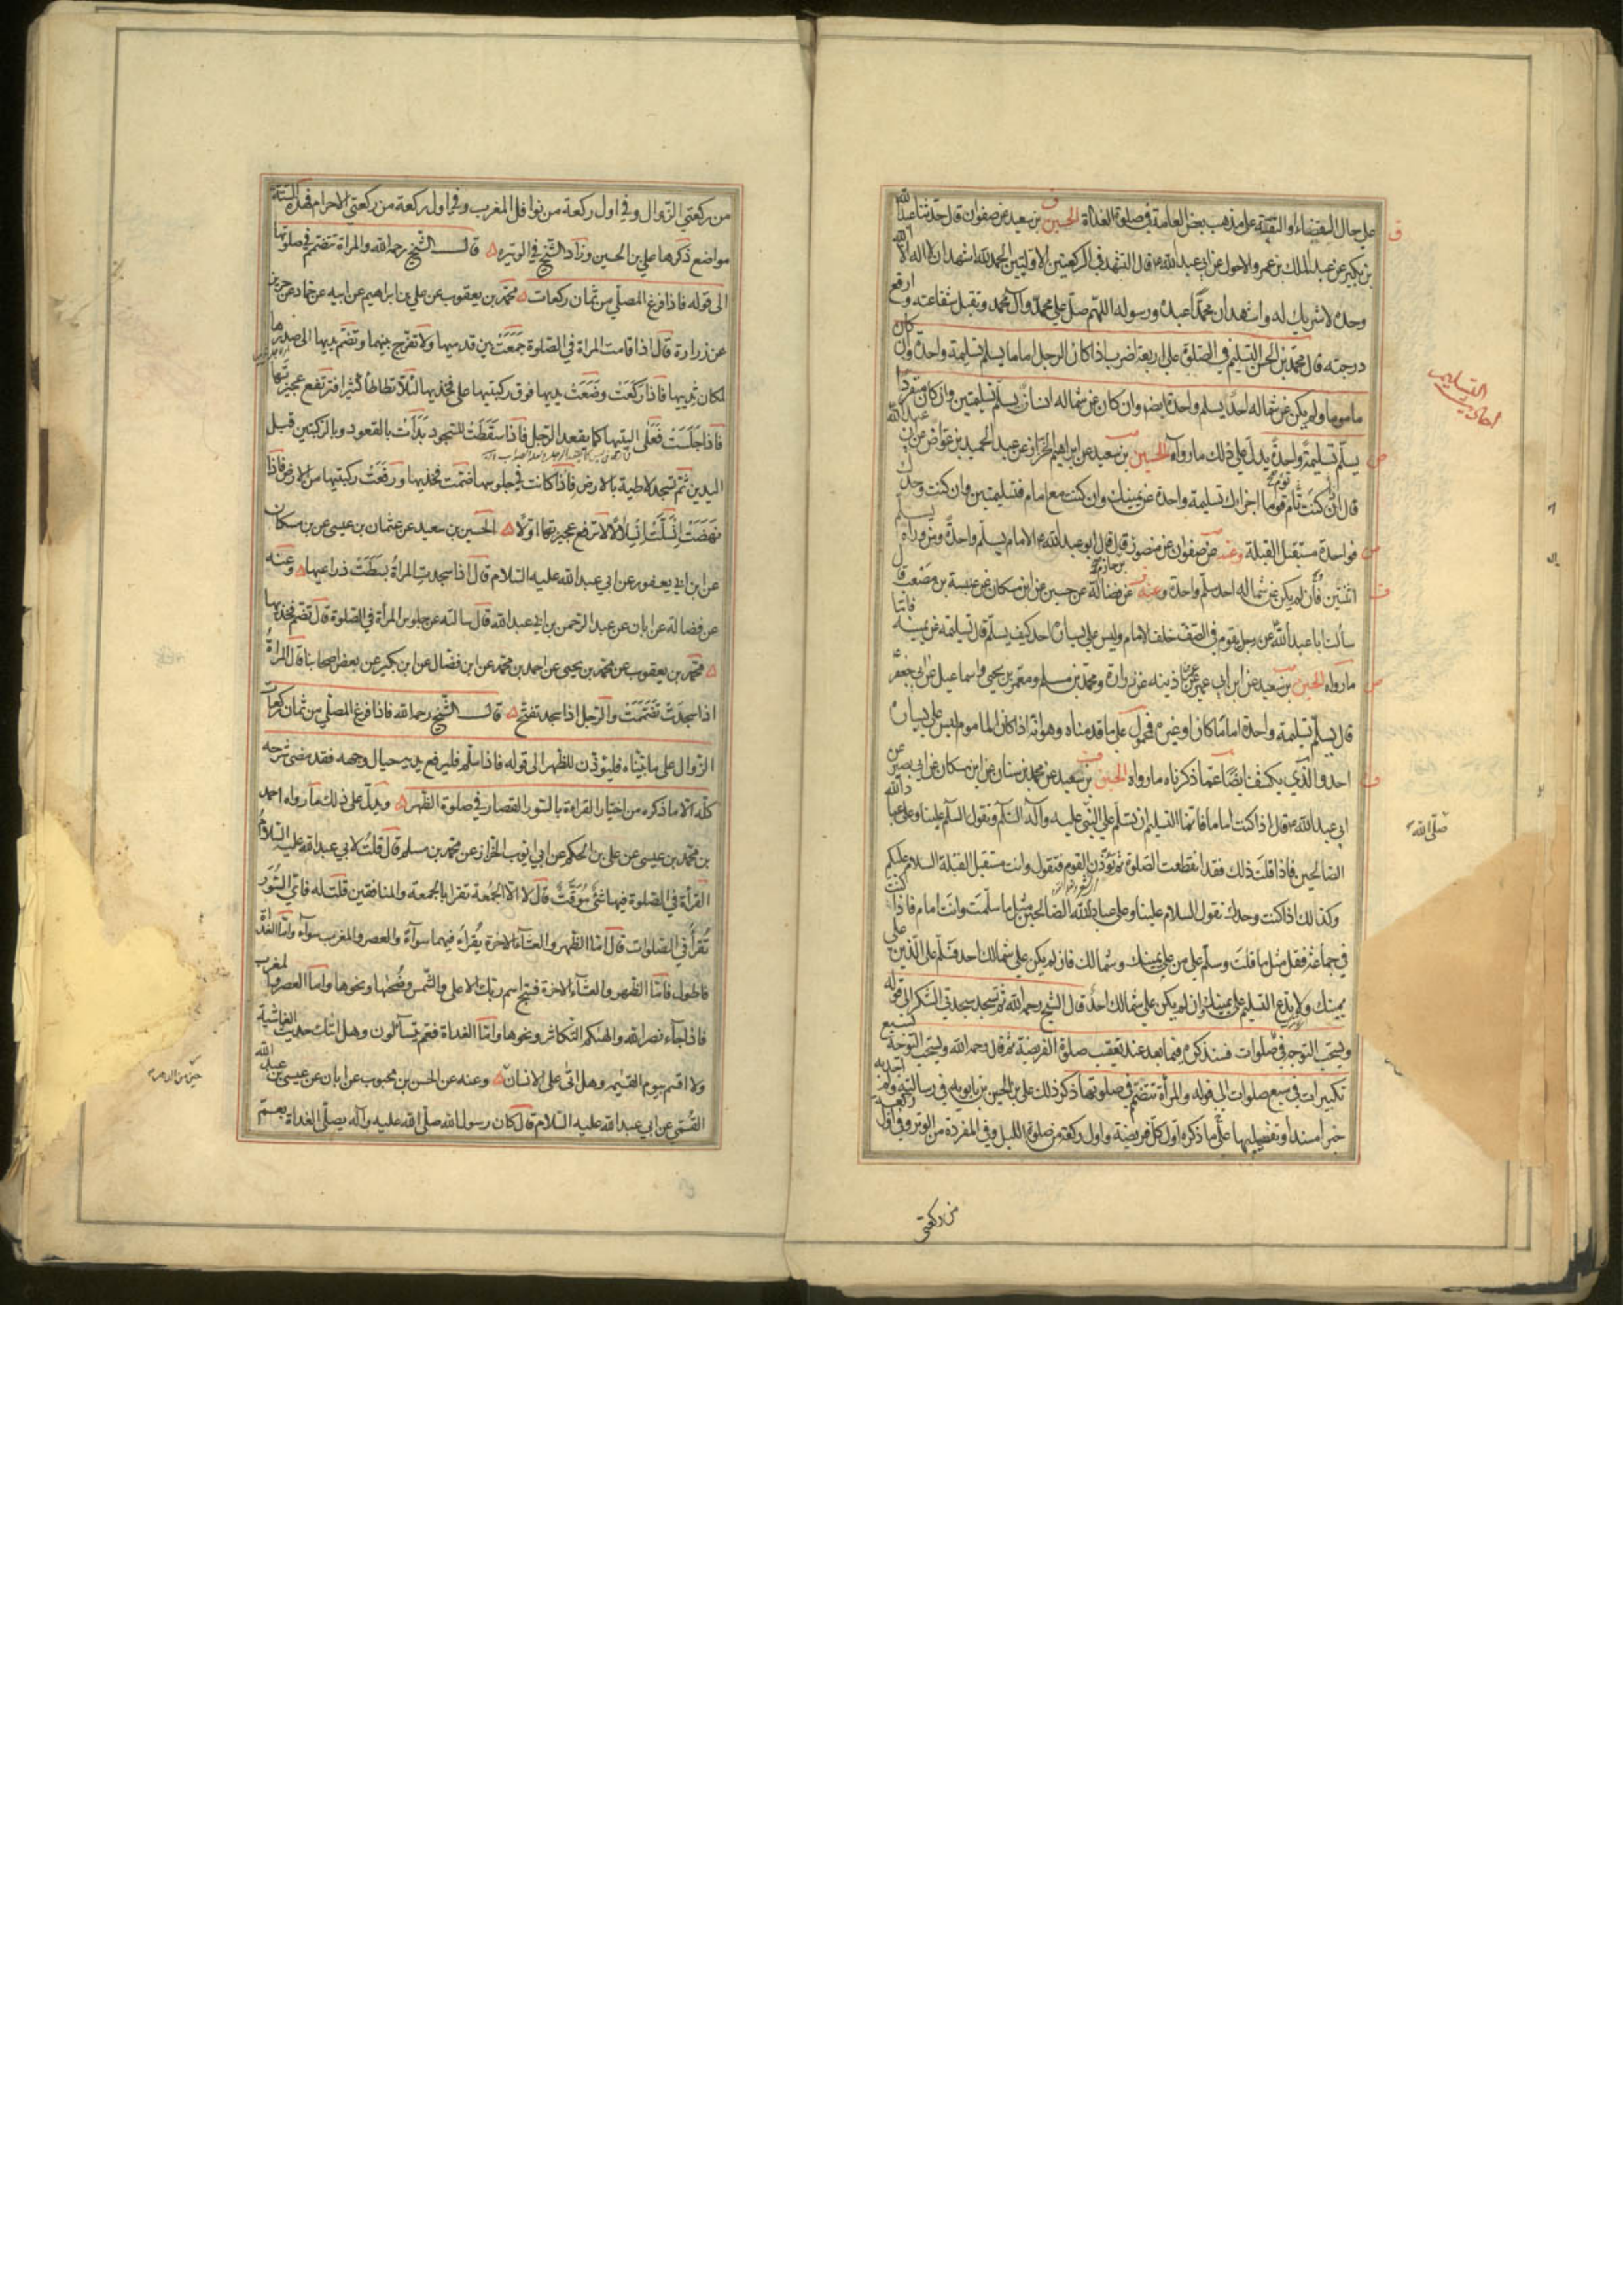 على حال الاستقضاء او التقية على مذهب بعض العامة في صلوة الغداة الحسين بن سعيد عن صفوان قال حدثنا عبد الله
بن بكير عن عبد الملك بن عمرو الاحول عن ابي عبد الله ع قال التشهد في الركعتين الاولتين الحمد لله اشهد ان لا اله الا الله
وحده لا شريك له واشهد ان محمدا عبده ورسوله اللهم صل على محمد وآل محمد وتقبل شفاعته وارفع
درجته قال محمد بن الحسن التسليم في الصلوة على اربعة اضرب اذا كان الرجل اماما يسلم تسليمة واحدة وان كان
ماموما ولم يكن عن شماله احد يسلم واحدة ايضا وان كان عن شماله انسان يسلم تسليمتين وان كان منفردا
يسلم تسليمة واحدة يدل على ذلك ما رواه الحسين بن سعيد عن ابراهيم الخزاز عن عبد الحميد بن عواض عن ابي عبد الله
قال ان كنت تأم قوما اجزاك تسليمة واحدة عن يمينك وان كنت مع امام فتسليمتين وان كنت وحدك
فواحدة مستقبل القبلة وعنه عن صفوان عن منصور قال قال ابو عبد الله ع الامام يسلم واحدة ومن وراه يسلم
اثنتين فان لم يكن عن شماله احد سلم واحدة وعنه عن فضالة عن حسين عن ابن مسكان عن عنبسة بن مصعب قال
سألت ابا عبد الله عن رجل يقوم في الصف خلف الامام وليس على يساره احد كيف يسلم قال تسليمة عن يمينه فاما
ما رواه الحسين بن سعيد عن ابن ابي عمير عن عمر بن اذينه عن زرارة ومحمد بن مسلم ومعمر بن يحيى واسماعيل عن ابي جعفر
قال يسلم تسليمة واحدة اماما كان او غيره فمحمول على ما قدمناه وهو انه اذا كان الماموم ليس على يساره
احد والذي يكشف ايضا عما ذكرناه ما رواه الحسين بن سعيد عن محمد بن سنان عن ابن مسكان عن ابي بصير عن
ابي عبد الله ع قال اذا كنت اماما فانما التسليم ان تسلم على النبي عليه وآله السلم وتقول السلم علينا وعلى عباد الله
الصالحين فاذا قلت ذلك فقد انقطعت الصلوة ثم تؤذن القوم فتقول وانت مستقبل القبلة السلام عليكم
وكذلك اذا كنت وحدك تقول السلام علينا وعلى عباد الله الصالحين مثل ما سلمت وانت امام فاذا كنت
في جماعة فقل مثل ما قلت وسلم على من على يمينك وشمالك فان لم يكن على شمالك احد فسلم على الذين على
يمينك ولا تدع التسليم على يمينك وان لم يكن على شمالك احد قال الشيخ رحمه الله ثم تسجد سجدتي الشكر الى قوله
ويستحب التوجه في صلوات فسنذكره فيما بعد عند تعقيب صلوة الفريضة ثم قال رحمه الله ويستحب التوجه بسبع
تكبيرات في سبع صلوات الى قوله والمرأة تنضم في صلوتها ذكر ذلك علي بن الحسين بن بابويه في رسالته ولم اجد به
خبرا مسندا وتفصيلها على ما ذكره اول كل فريضة واول ركعة من صلوة الليل وفي المفردة من الوتر وفي اول ركعة
من ركعتي
احاديث التسليم
صلى الله
من ركعتي الزوال وفي اول ركعة من نوافل المغرب وفي اول ركعة من ركعتي الاحرام فهذه الستة
مواضع ذكرها علي بن الحسين وزاد الشيخ في الوتيرة قال الشيخ رحمه الله والمرأة تنضم في صلوتها
الى قوله فاذا فرغ المصلي من ثمان ركعات محمد بن يعقوب عن علي بن ابراهيم عن ابيه عن حماد عن حريز
عن زرارة قال اذا قامت المراة في الصلوة جمعت بين قدميها ولا تفرج بينهما وتضم يديها الى صدرها
لمكان ثدييها فاذا ركعت وضعت يديها فوق ركبتيها على فخذيها لئلا تطاطأ كثيرا فترتفع عجيزتها
فاذا جلست فعلى اليتيها كما يقعد الرجل فاذا سقطت للسجود بدأت بالقعود وبالركبتين قبل
اليدين ثم تسجد لاطية بالارض فاذا كانت في جلوسها ضمت فخذيها ورفعت ركبتيها من الارض فاذا
نهضت انسلت انسلالا لا ترفع عجيزتها اولا الحسين بن سعيد عن عثمان بن عيسى عن بن مسكان
عن ابن ابي يعفور عن ابي عبد الله عليه السلام قال اذا سجدت المرأة بسطت ذراعيها وعنه
عن فضالة عن ابان عن عبد الرحمن بن ابي عبد الله قال سالته عن جلوس المرأة في الصلوة قال تضم فخذيها
محمد بن يعقوب عن محمد بن يحيى عن احمد بن محمد عن ابن فضال عن ابن بكير عن بعض اصحابنا قال المرأة
اذا سجدت تضممت والرجل اذا سجد تفتح قال الشيخ رحمه الله فاذا فرغ المصلي من ثمان ركعات
الزوال على ما بيناه فليؤذن للظهر الى قوله فاذا سلم فليرفع يديه حيال وجهه فقد مضى شرحه
كله الا ما ذكره من اختيار القراءة بالسور القصار في صلوة الظهر ويدل على ذلك ما رواه احمد
بن محمد بن عيسى عن علي بن الحكم عن ابي ايوب الخزاز عن محمد بن مسلم قال قلت لابي عبد الله عليه السلام
القرأة في الصلوة فيها شئ موقت قال لا الا الجمعة تقرا بالجمعة والمنافقين قلت له فاي السور
تقرأ في الصلوات قال اما الظهر والعشاء الاخرة يقراء فيهما سواء والعصر والمغرب سواء واما الغداة
فاطول فاما الظهر والعشاء الاخرة فسبح اسم ربك الاعلى والشمس وضحيها ونحوها واما العصر والمغرب
فاذا جاء نصر الله والهيكم التكاثر ونحوها واما الغداة فعم يتسآلون وهل اتيك حديث الغاشية
ولا اقسم بيوم القيمة وهل اتى على الانسان وعنه عن الحسن بن محبوب عن ابان عن عيسى بن عبد الله
القمي عن ابي عبد الله عليه السلام قال كان رسول الله صلى الله عليه وآله يصلي الغداة بعم
حين من الدهر